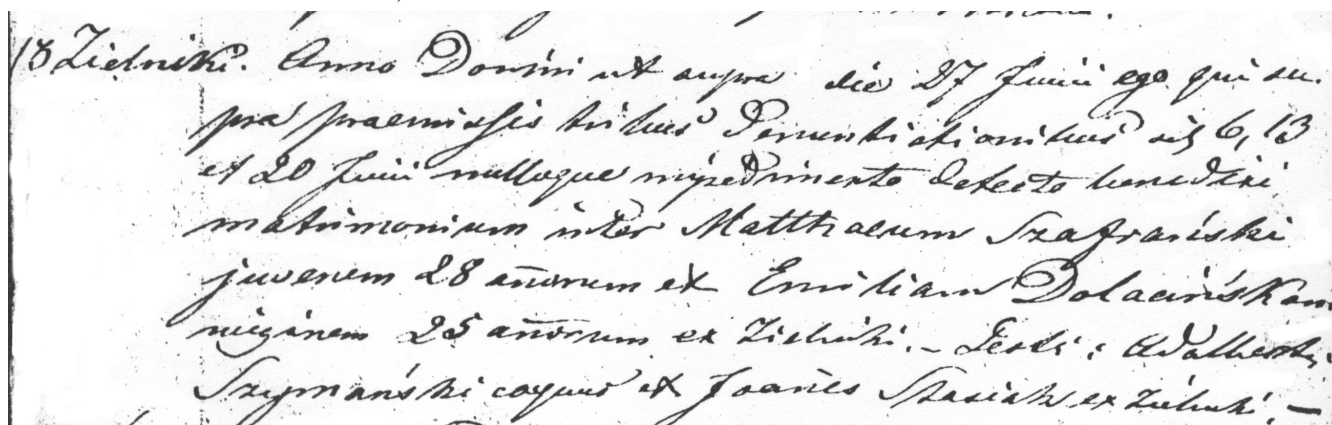 18 Zielniki. Anno Domini ut supra die 27 Junii ego qui su-
pra praemissis tribus denuntiationibus 6, 13
et 20 Junii nulloque impedimento detecto benedixi
matrimonium inter Matthaeum Szafrański
juvenem 28 añorum et Emiliam Dolacińskam
virginem 25 añorum ex Zielniki. – Testi: Adalbertus
Szymański coquus et Joañes Stasiak ex Zielniki. –